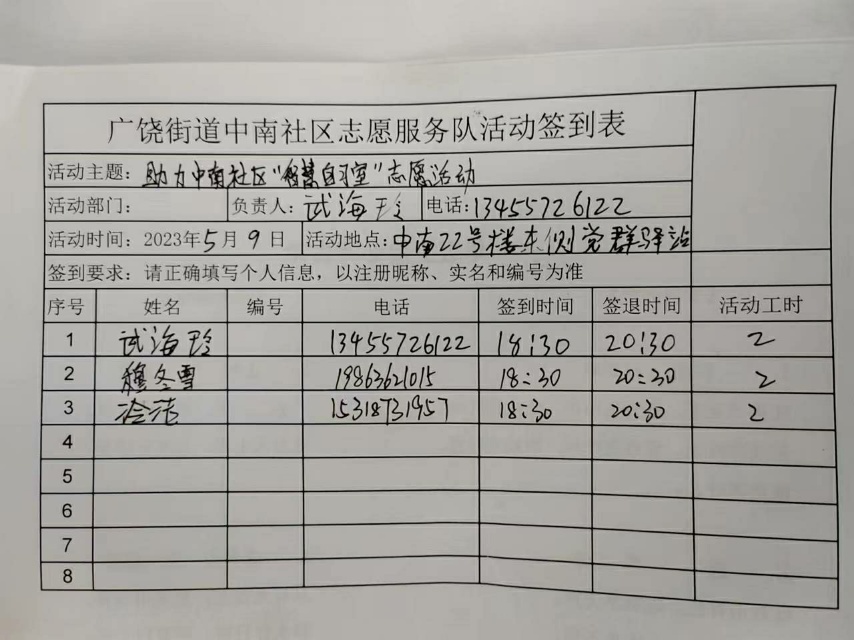 广饶街道中南社区志愿服务队活动签到表
活动主题：助力中南社区“自习室”志愿活动
活动部门： 负责人：试海玲 电话：13455726122
活动时间：2023年5月9日 活动地点：中南22号楼东侧党群驿站
签到要求：请正确填写个人信息，以注册昵称、实名和编号为准
序号 姓名 编号 电话 签到时间 签退时间 活动工时
1 试海玲 13455726122 18:30 20:30 2
2 穆冬雪 19863621015 18:30 20:30 2
3 15318731957 18:30 20:30 2
4
5
6
7
8